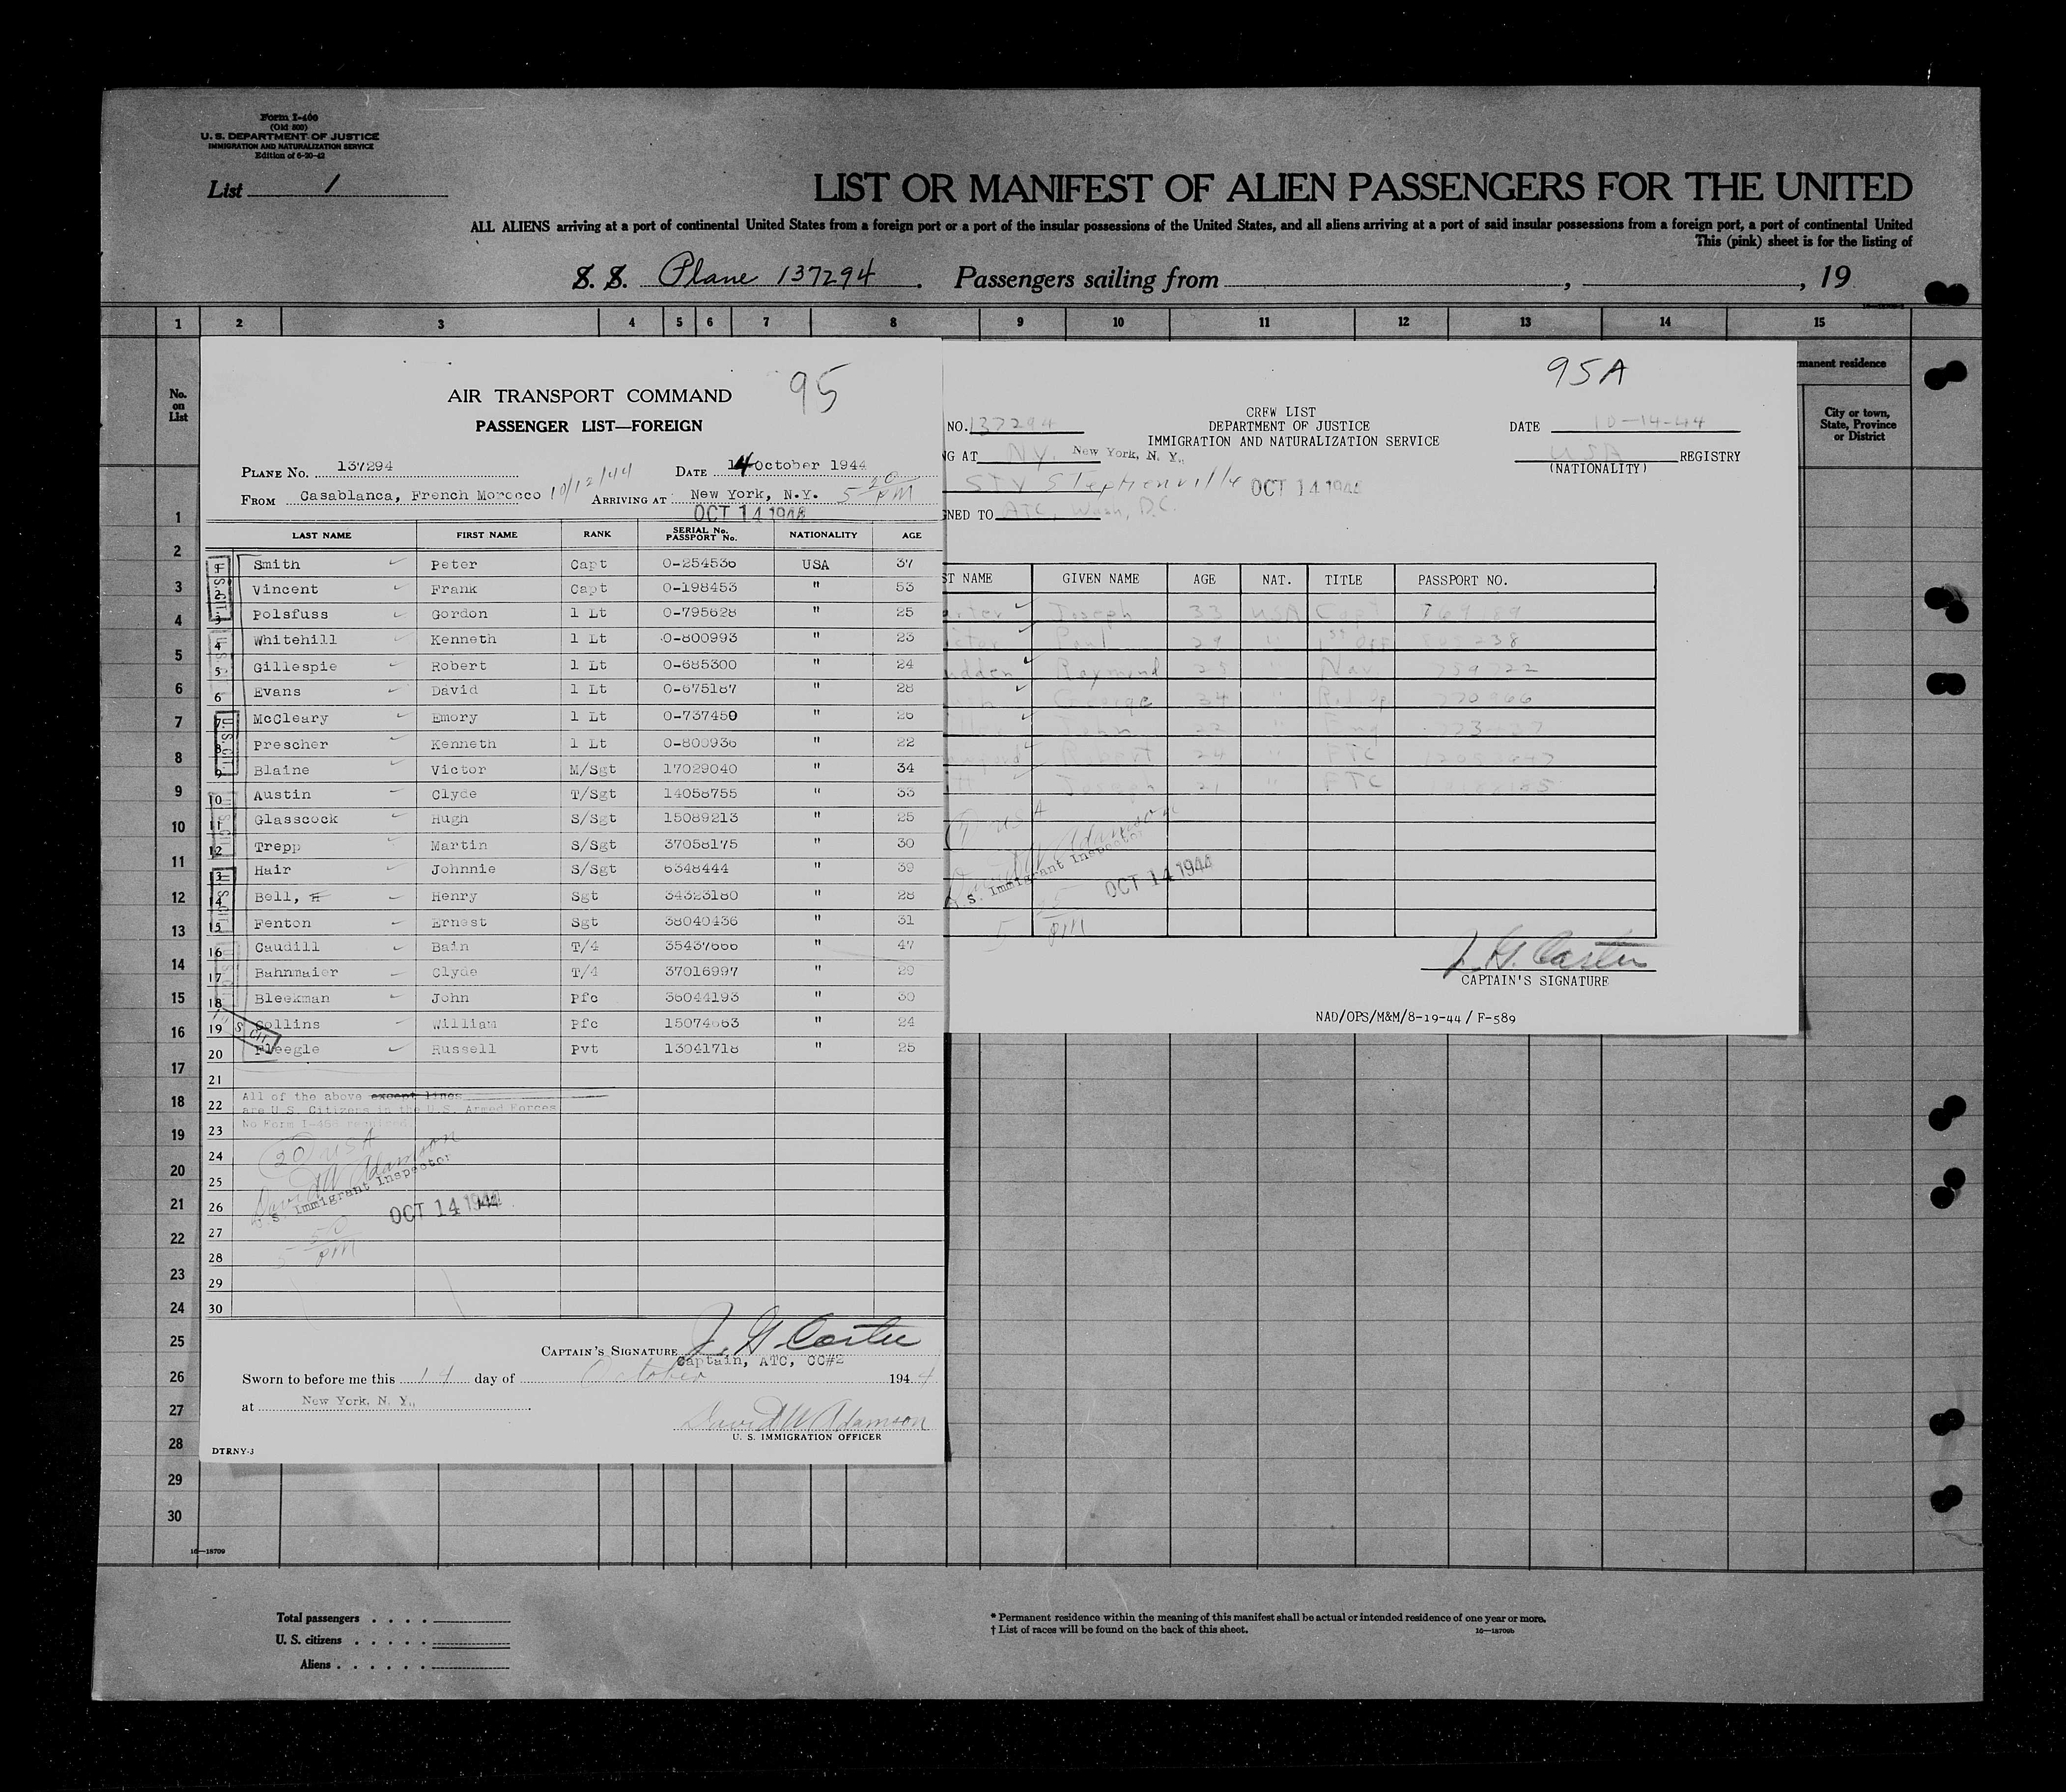 Form I-400
(Old 500)
U. S. DEPARTMENT OF JUSTICE
IMMIGRATION AND NATURALIZATION SERVICE
Edition of 6-20-42
List 1
LIST OR MANIFEST OF ALIEN PASSENGERS FOR THE UNITED
ALL ALIENS arriving at a port of continental United States from a foreign port or a port of the insular possessions of the United States, and all aliens arriving at a port of said insular possessions from a foreign port, a port of continental United
This (pink) sheet is for the listing of
S. S. Plane 137294. Passengers sailing from , , 19
1 2 3 4 5 6 7 8 9 10 11 12 13 14 15
No. on List
manent residence
City or town, State, Province or District
95
AIR TRANSPORT COMMAND
PASSENGER LIST—FOREIGN
PLANE NO. 137294 DATE 14 October 1944
FROM Casablanca, French Morocco 10/12/44 ARRIVING AT New York, N.Y. 5 20 PM
OCT 14 1944
LAST NAME FIRST NAME RANK SERIAL No. PASSPORT No. NATIONALITY AGE
1 Smith Peter Capt O-254536 USA 37
2 Vincent Frank Capt O-198453 " 53
3 Polsfuss Gordon 1 Lt O-795628 " 25
4 Whitehill Kenneth 1 Lt O-800993 " 23
5 Gillespie Robert 1 Lt O-685300 " 24
6 Evans David 1 Lt O-675187 " 28
7 McCleary Emory 1 Lt O-737450 " 26
8 Prescher Kenneth 1 Lt O-800936 " 22
9 Blaine Victor M/Sgt 17029040 " 34
10 Austin Clyde T/Sgt 14058755 " 33
11 Glasscock Hugh S/Sgt 15089213 " 25
12 Trepp Martin S/Sgt 37058175 " 30
13 Hair Johnnie S/Sgt 6348444 " 39
14 Bell, Henry Sgt 34323180 " 28
15 Fenton Ernest Sgt 38040436 " 31
16 Caudill Bain T/4 35437666 " 47
17 Bahnmaier Clyde T/4 37016997 " 29
18 Bleekman John Pfc 36044193 " 30
19 Collins William Pfc 15074663 " 24
20 Fleegle Russell Pvt 13041718 " 25
21
22 All of the above except lines
are U.S. Citizens in the U.S. Armed Forces
23 No Form I-466 required
24 (20) USA
25 David W Adamson
26 U. S. Immigrant Inspector OCT 14 1944
27 5 50
28 PM
29
30
CAPTAIN'S SIGNATURE J. G. Carter
Captain, ATC, CC#2
Sworn to before me this 14 day of October 1944
at New York, N. Y.,
David W Adamson
U. S. IMMIGRATION OFFICER
DTRNY-3
95A
CREW LIST
DEPARTMENT OF JUSTICE
IMMIGRATION AND NATURALIZATION SERVICE
NO. 137294 DATE 10-14-44
NG AT N.Y. New York, N. Y., USA REGISTRY
(NATIONALITY)
STV Stephenville OCT 14 1944
NED TO ATC, Wash, D.C.
ST NAME GIVEN NAME AGE NAT. TITLE PASSPORT NO.
rter Joseph 33 USA Capt
Paul 29 " 1st Off
dden Raymond " Nav
George 34 "
John 22 " Eng
Robert 24 " FTC
Joseph 21 " FTC
(7) USA
David W Adamson
U. S. Immigrant Inspector OCT 14 1944
5 PM
J. G. Carter
CAPTAIN'S SIGNATURE
NAD/OPS/M&M/8-19-44 / F-589
1
2
3
4
5
6
7
8
9
10
11
12
13
14
15
16
17
18
19
20
21
22
23
24
25
26
27
28
29
30
16—18709
Total passengers . . . .
U. S. citizens . . . . .
Aliens . . . . . .
* Permanent residence within the meaning of this manifest shall be actual or intended residence of one year or more.
† List of races will be found on the back of this sheet.
16—18709b